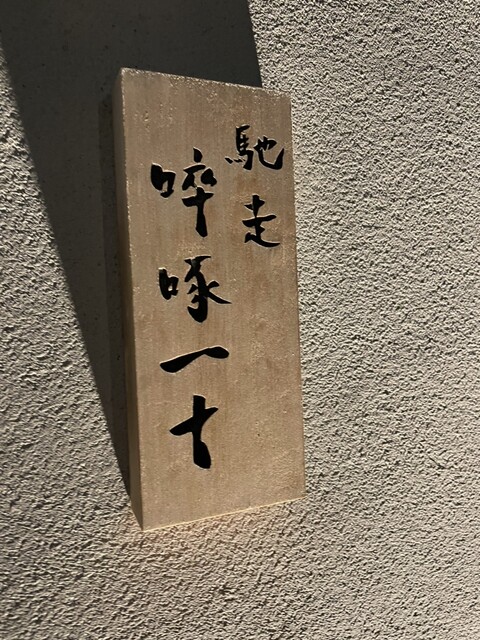 馳走
啐啄一十